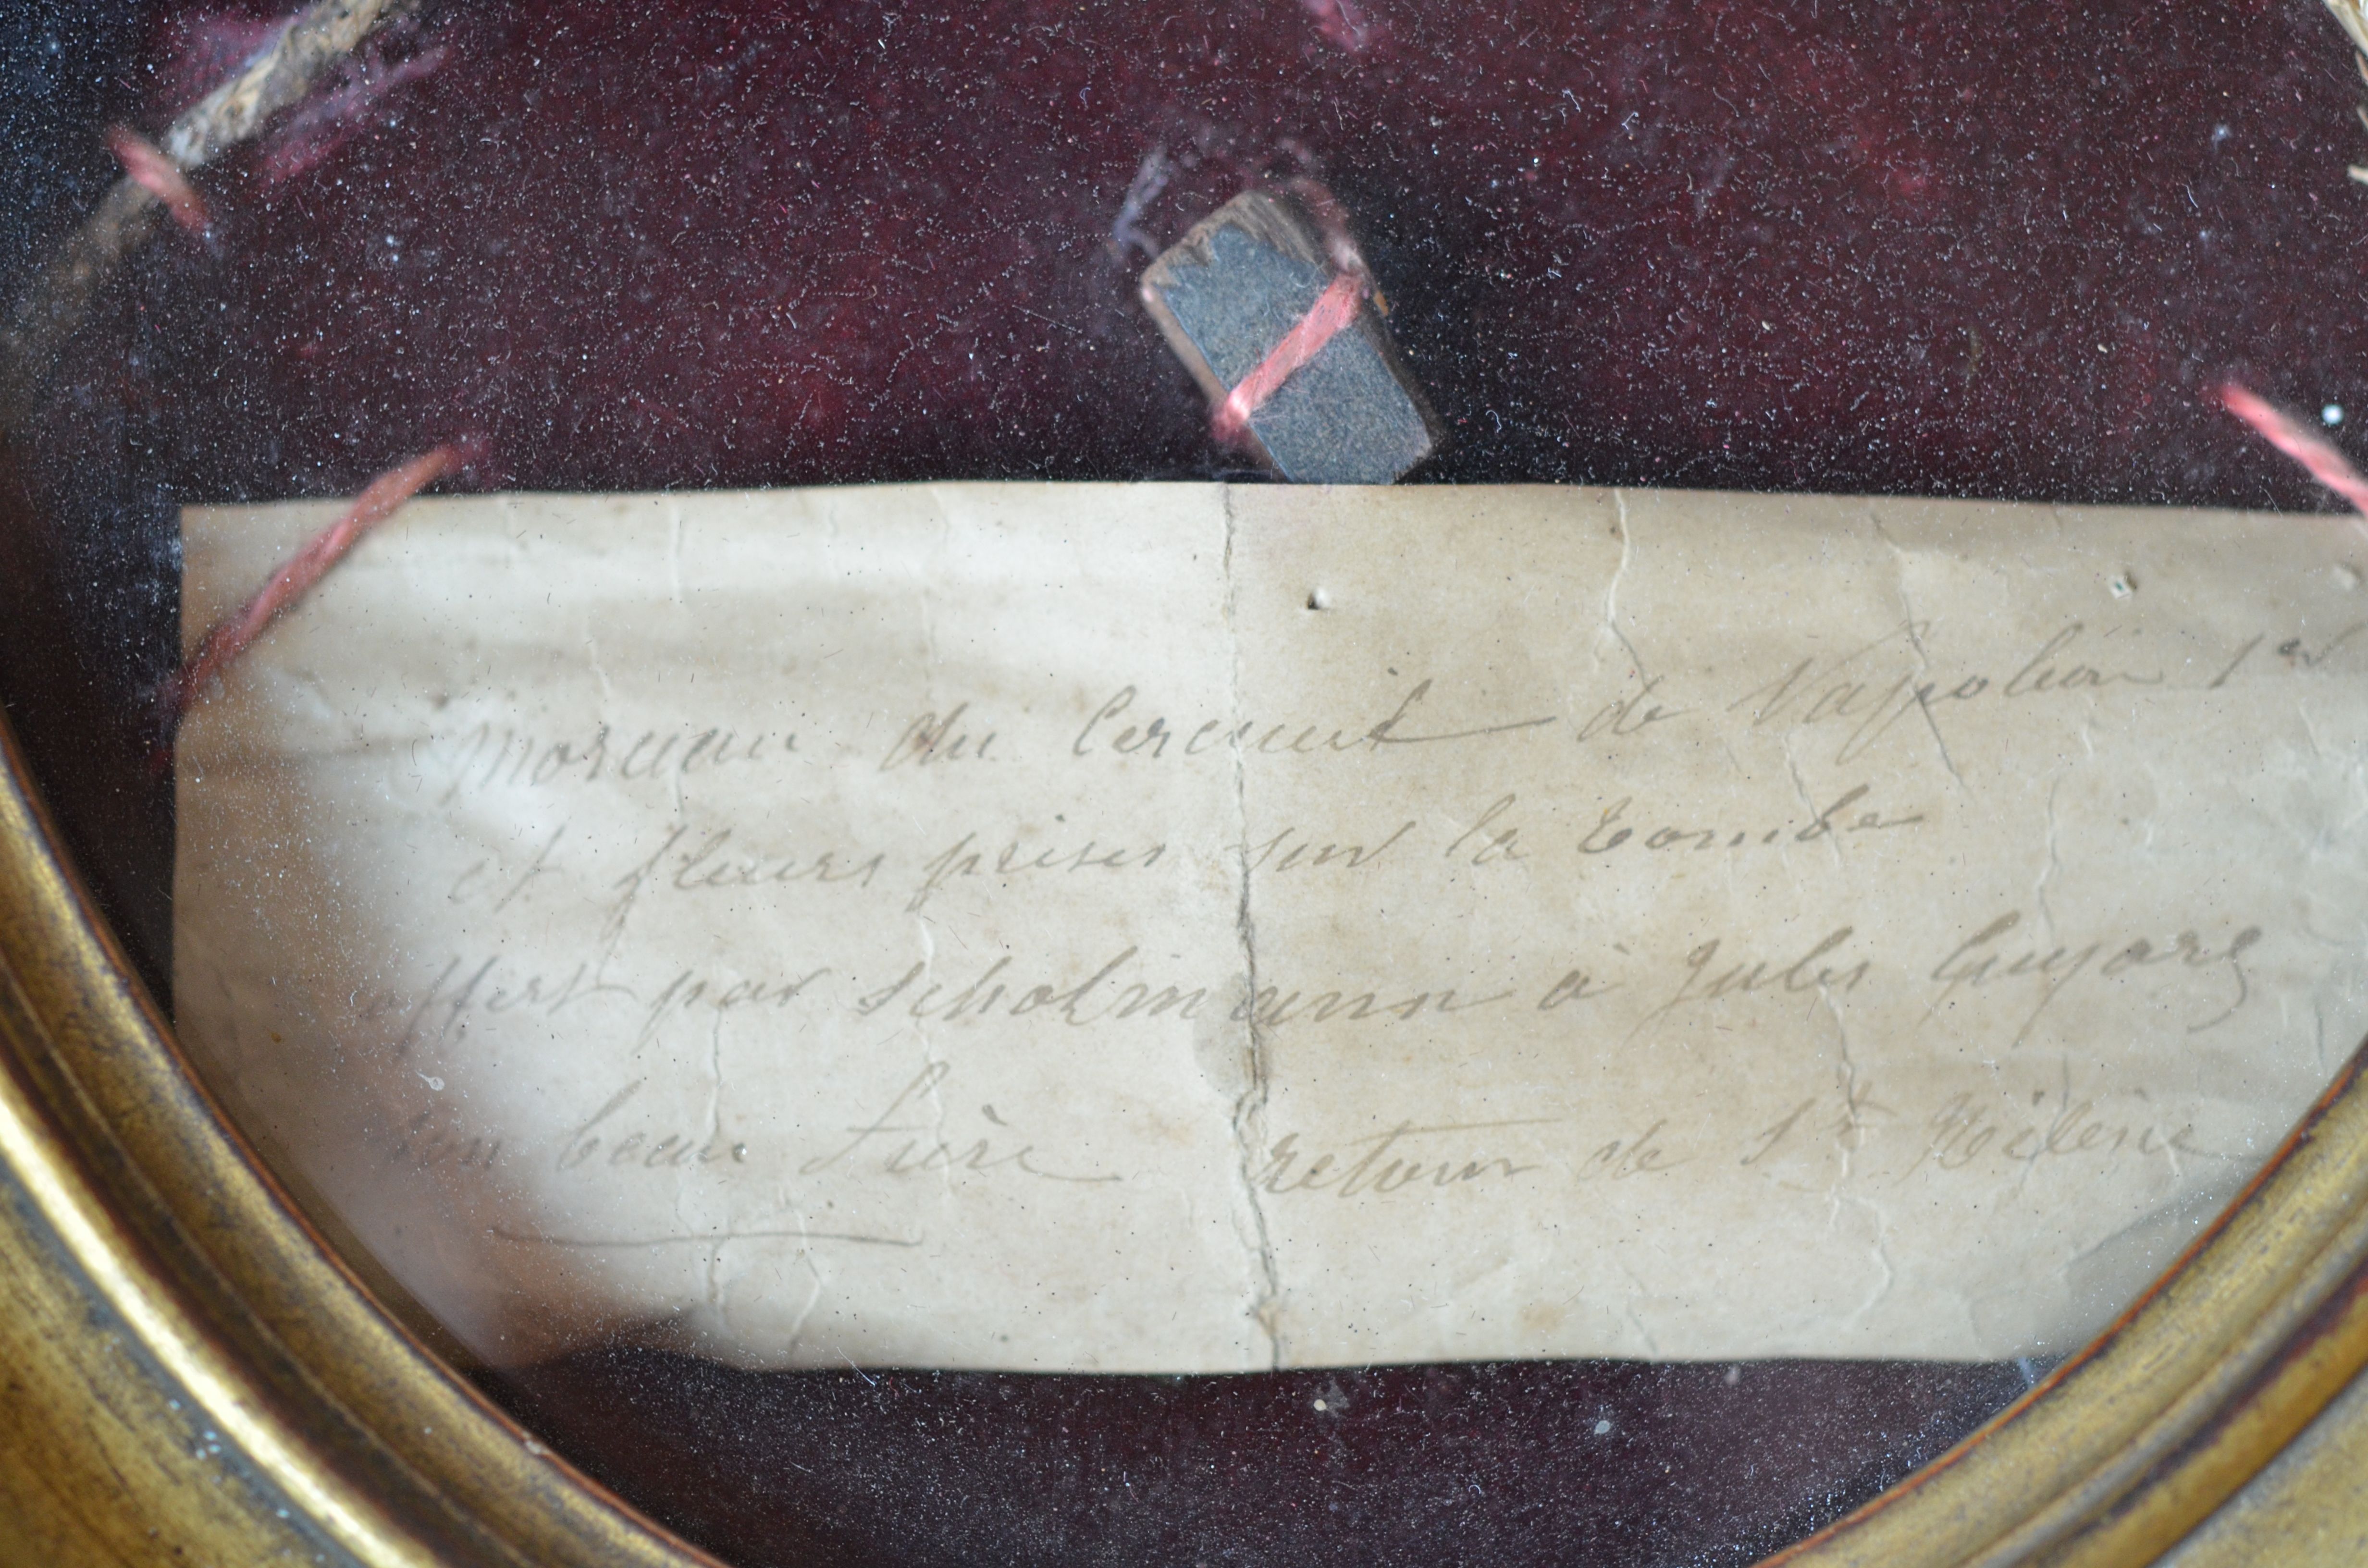 morceau du cercueil de Napoléon 1er
et fleurs prises sur la tombe
offert par Scholmann à Jules
son beau frère retour de Ste Hélène